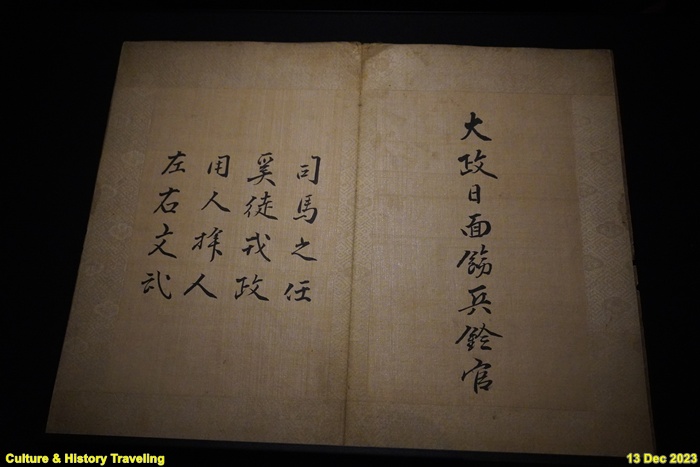 大政日面飭兵銓官
司馬之任
奚徒戎政
用人擇人
左右文武
Culture & History Traveling
13 Dec 2023